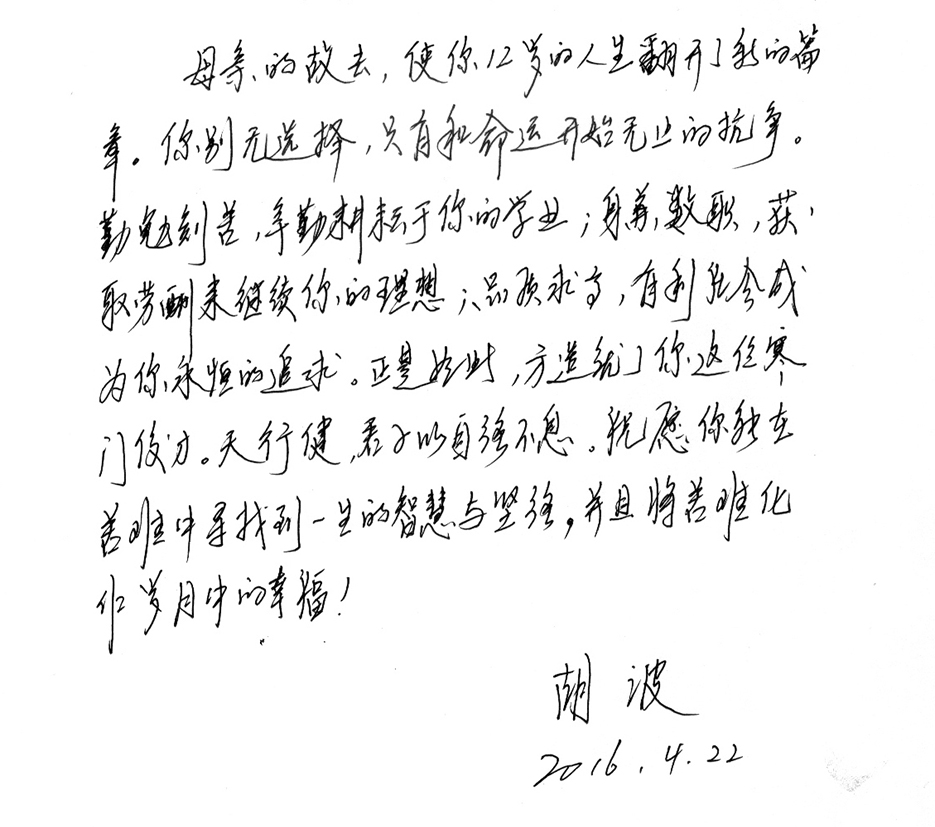 母亲的故去，使你12岁的人生翻开了新的篇
章。你别无选择，只有和命运开始无止的抗争。
勤勉刻苦，辛勤耕耘于你的学业；身兼数职，获
取劳酬来继续你的理想；品质求高，有利社会成
为你永恒的追求。正是如此，方造就了你这位寒
门俊才。天行健，君子以自强不息。祝愿你能在
苦难中寻找到一生的智慧与坚强，并且将苦难化
作岁月中的幸福！
胡波
2016.4.22